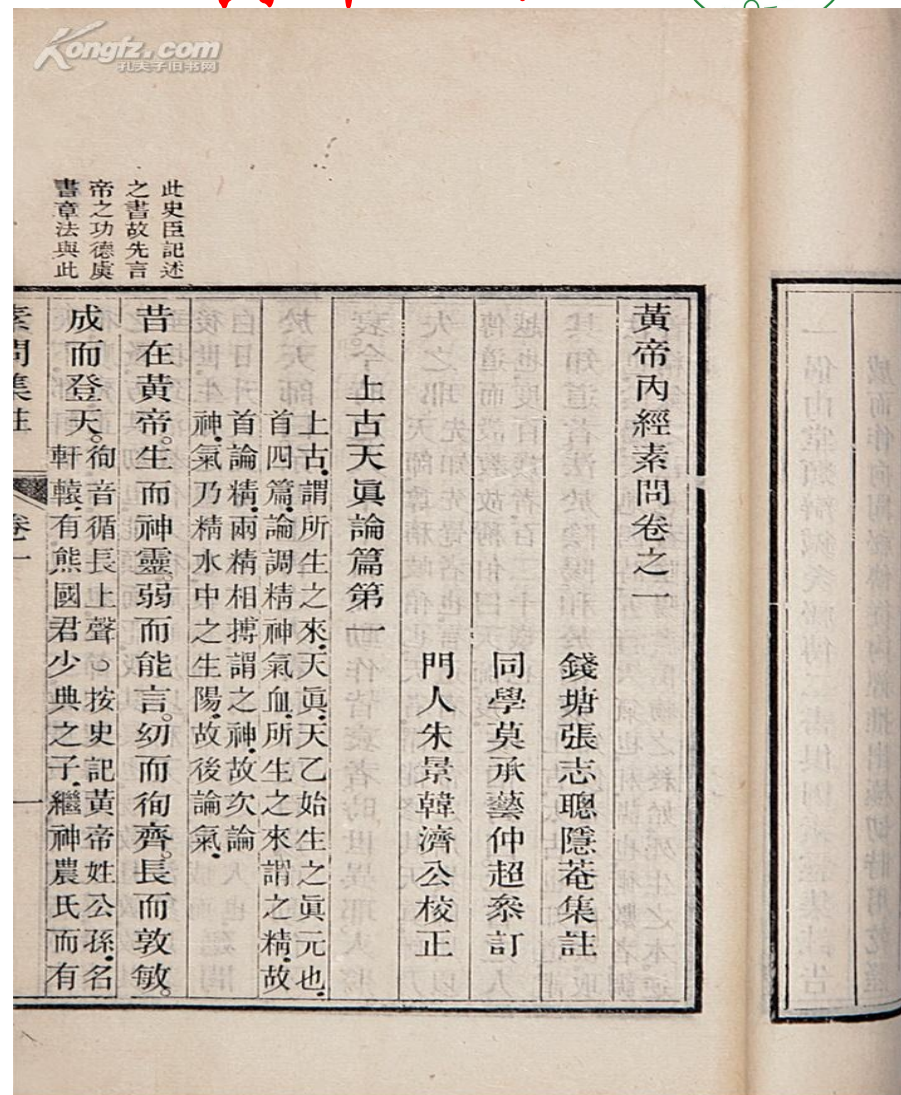 Kongfz.com
孔夫子旧书网
此史臣記述
之書故先言
帝之功德虞
書章法與此
黃帝內經素問卷之一
錢塘張志聰隱菴集註
同學莫承藝仲超叅訂
門人朱景韓濟公校正
上古天眞論篇第一
上古謂所生之來天眞天乙始生之眞元也
首四篇論調精神氣血所生之來謂之精故
首論精兩精相搏謂之神故次論
神氣乃精水中之生陽故後論氣
昔在黃帝。生而神靈。弱而能言。幼而徇齊。長而敦敏。
成而登天。
徇音循長上聲○按史記黃帝姓公孫名
軒轅有熊國君少典之子繼神農氏而有
素問集註
卷一
一